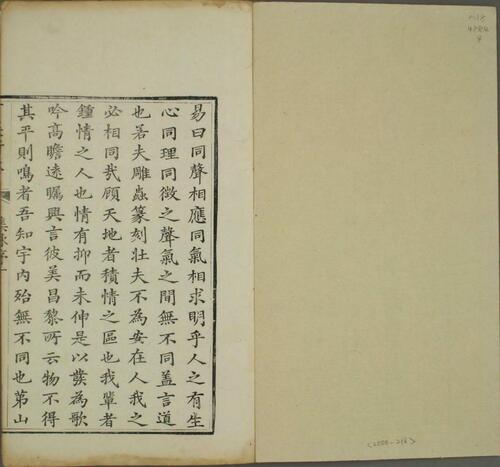 易曰同聲相應同氣相求明乎人之有生
心同理同徵之聲氣之間無不同蓋言道
也若夫雕蟲篆刻壯夫不為安在人我之
必相同哉顧天地者積情之區也我輩者
鍾情之人也情有抑而未伸是以發為歌
吟高瞻遠矚興言彼美昌黎所云物不得
其平則鳴者吾知宇內殆無不同也第山